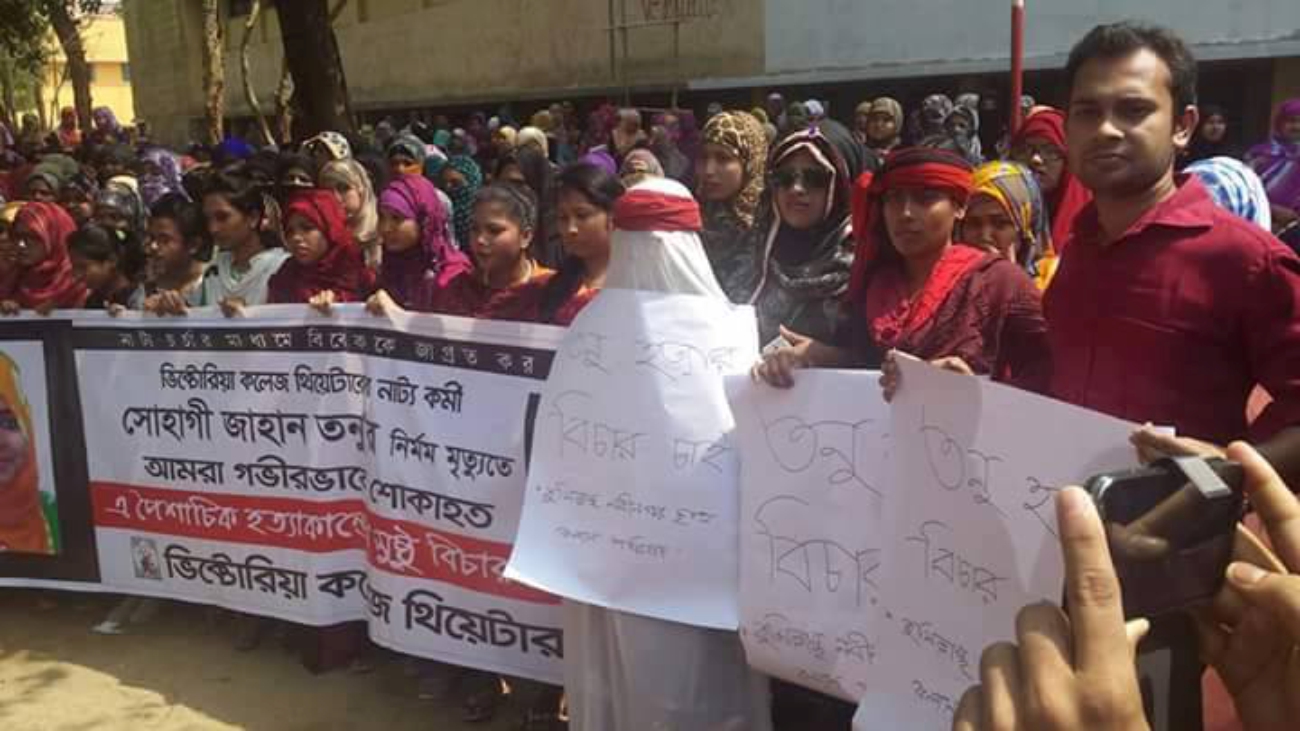 নাট্য চর্চার মাধ্যমে বিবেককে জাগ্রত কর
ভিক্টোরিয়া কলেজ থিয়েটারের নাট্য কর্মী
সোহাগী জাহান তনুর নির্মম মৃত্যুতে
আমরা গভীরভাবে শোকাহত
এ পৈশাচিক হত্যাকান্ডের সুষ্ঠু বিচার
ভিক্টোরিয়া কলেজ থিয়েটার
হত্যার
বিচার চাই
তনু
বিচার
তনু
বিচার